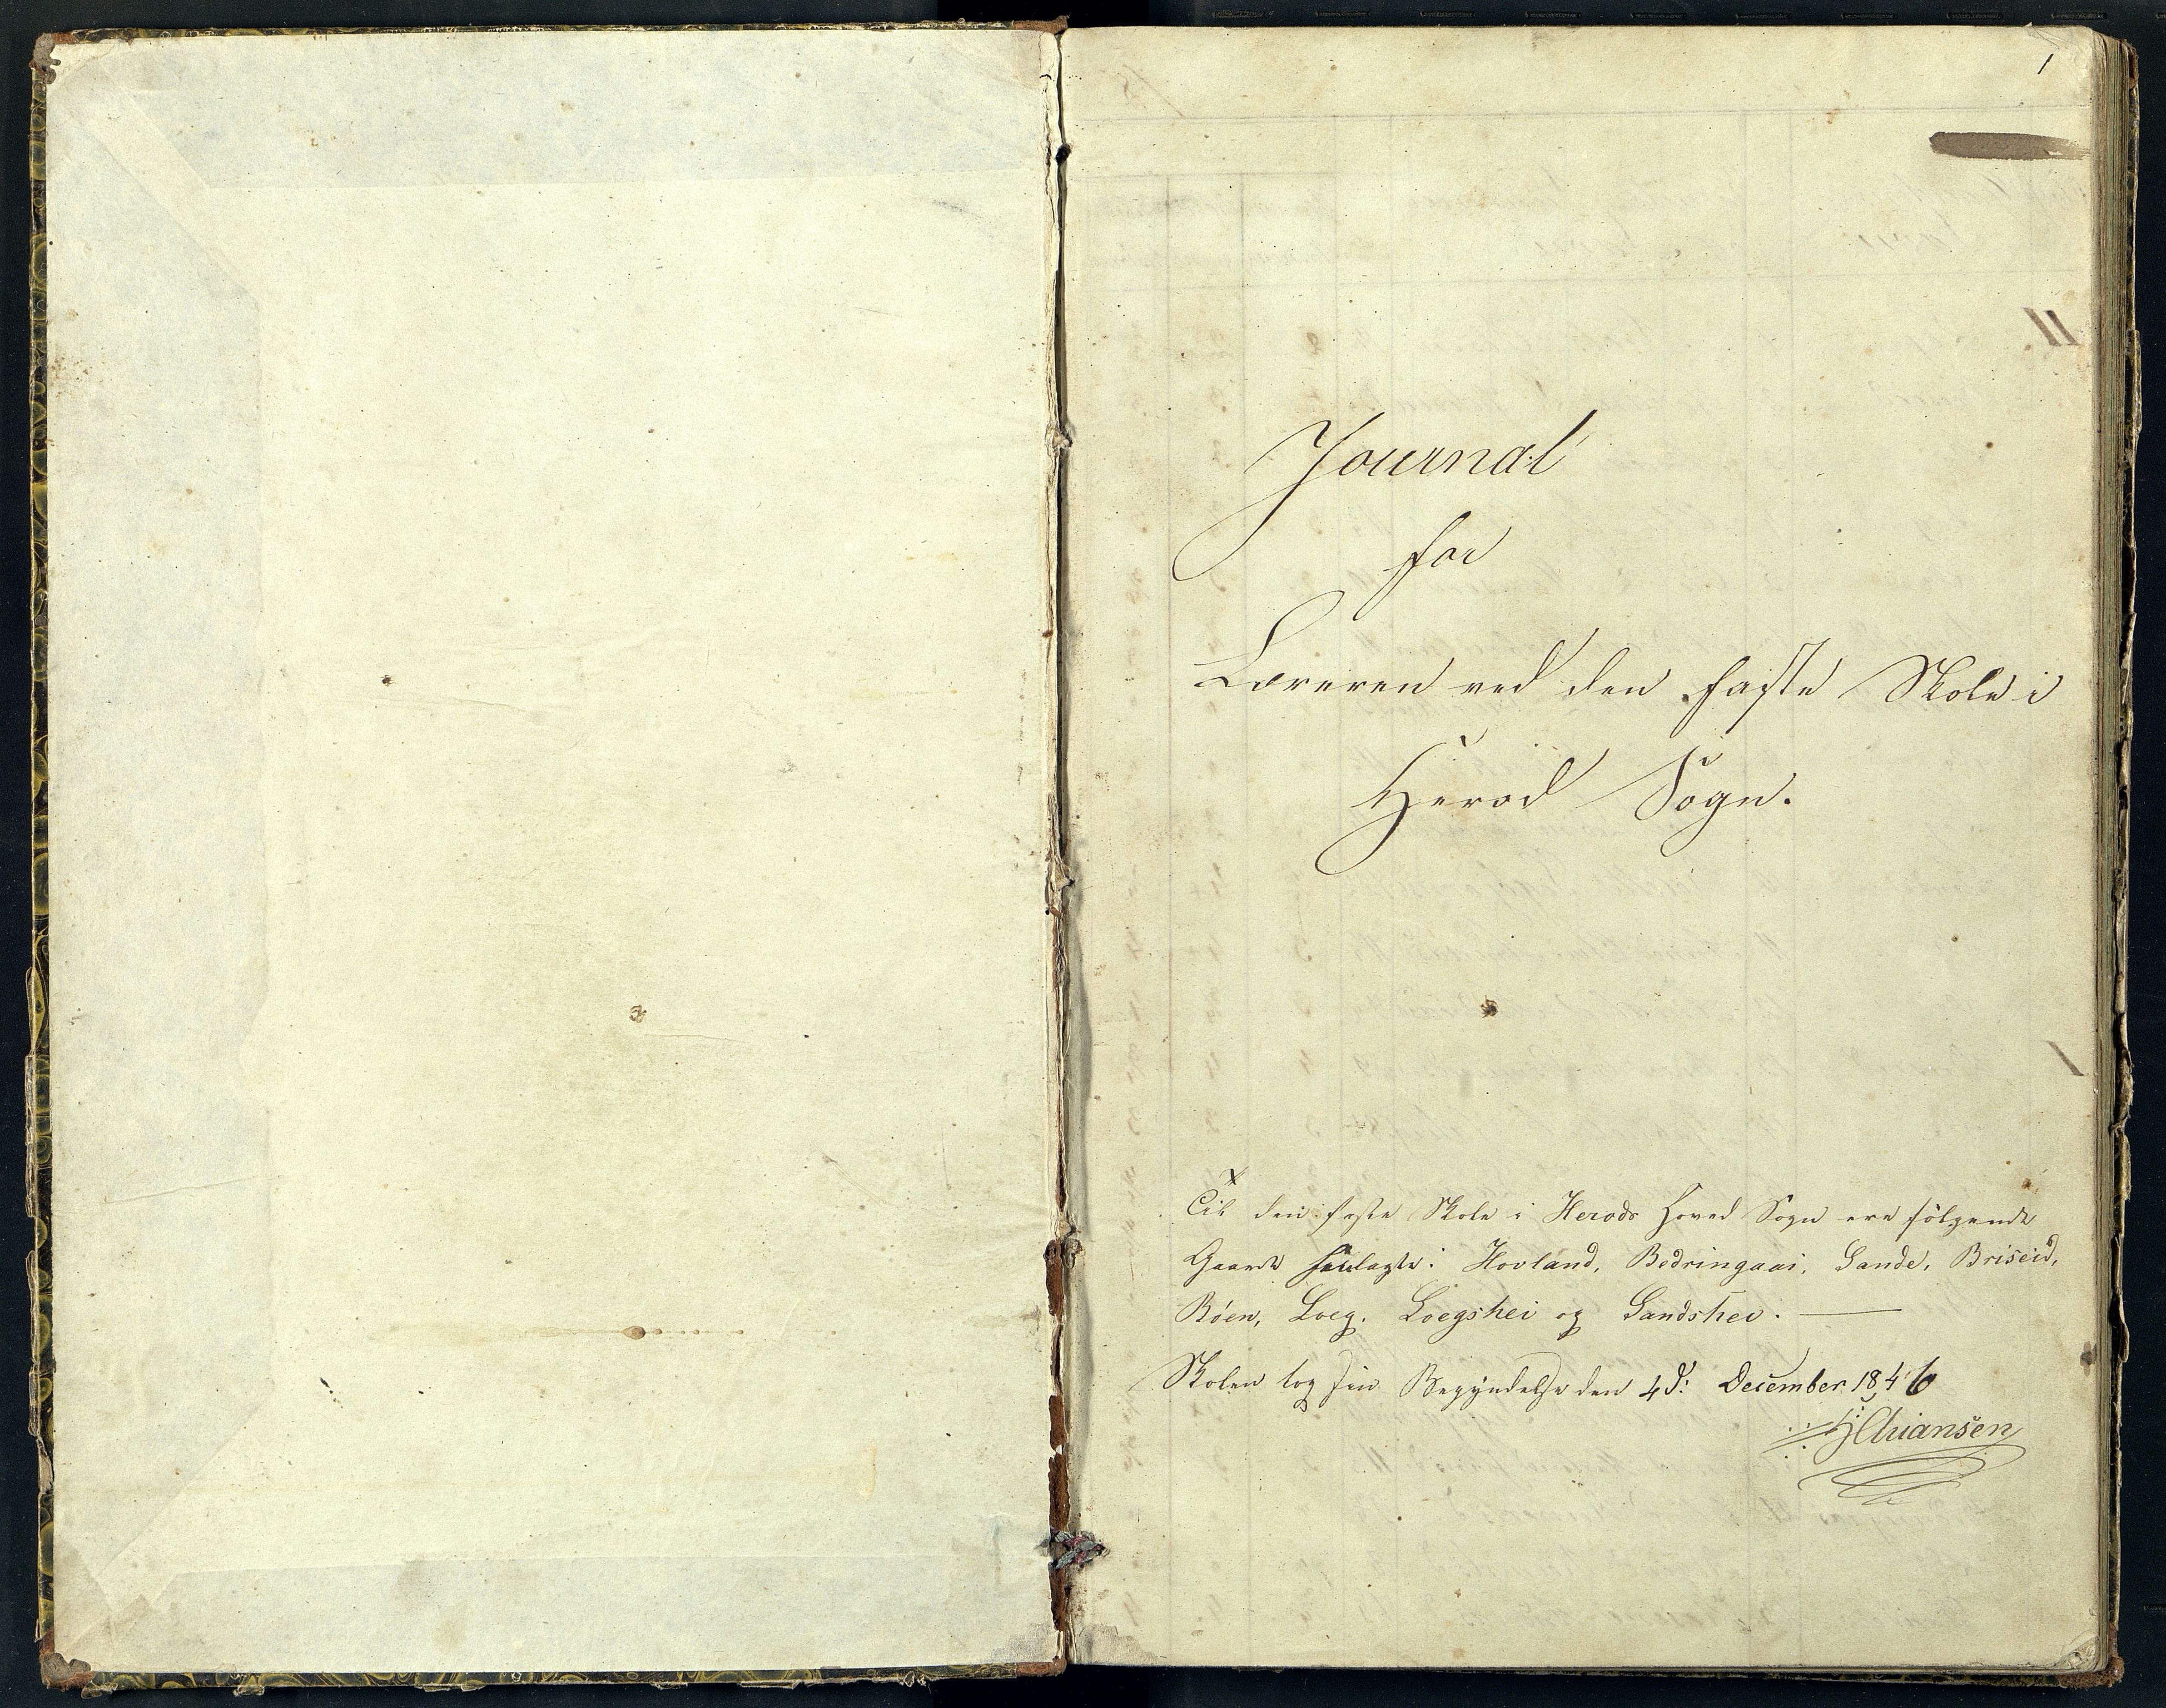 1
Journal
for
Læreren ved den faste Skole i
Herød Sogn.
x
Til den faste Skole i Herøds Hoved Sogn ere følgende
Gaarde henlagte: Hovland, Bedringaas, Sande, Briseid,
Röen, Loeg, Loegshei og Sandshei. —
Skolen tog sin Begyndelse den 4d: December 1846